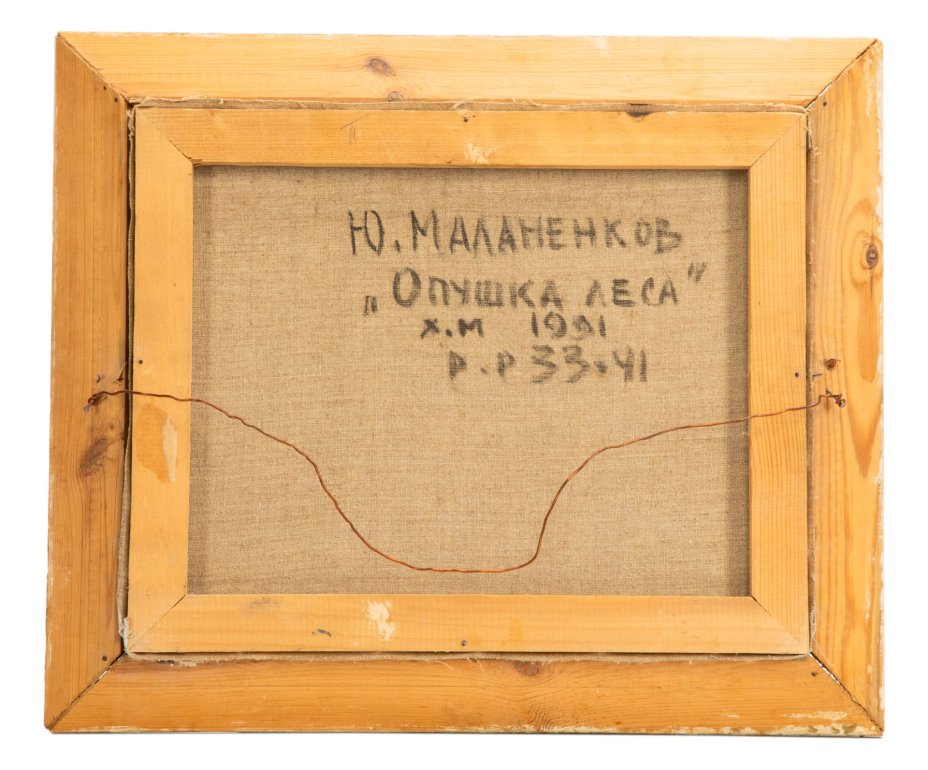 Ю. МАЛАНЕНКОВ
„ОПУШКА ЛЕСА"
х.м 1991
Р.Р 33.41